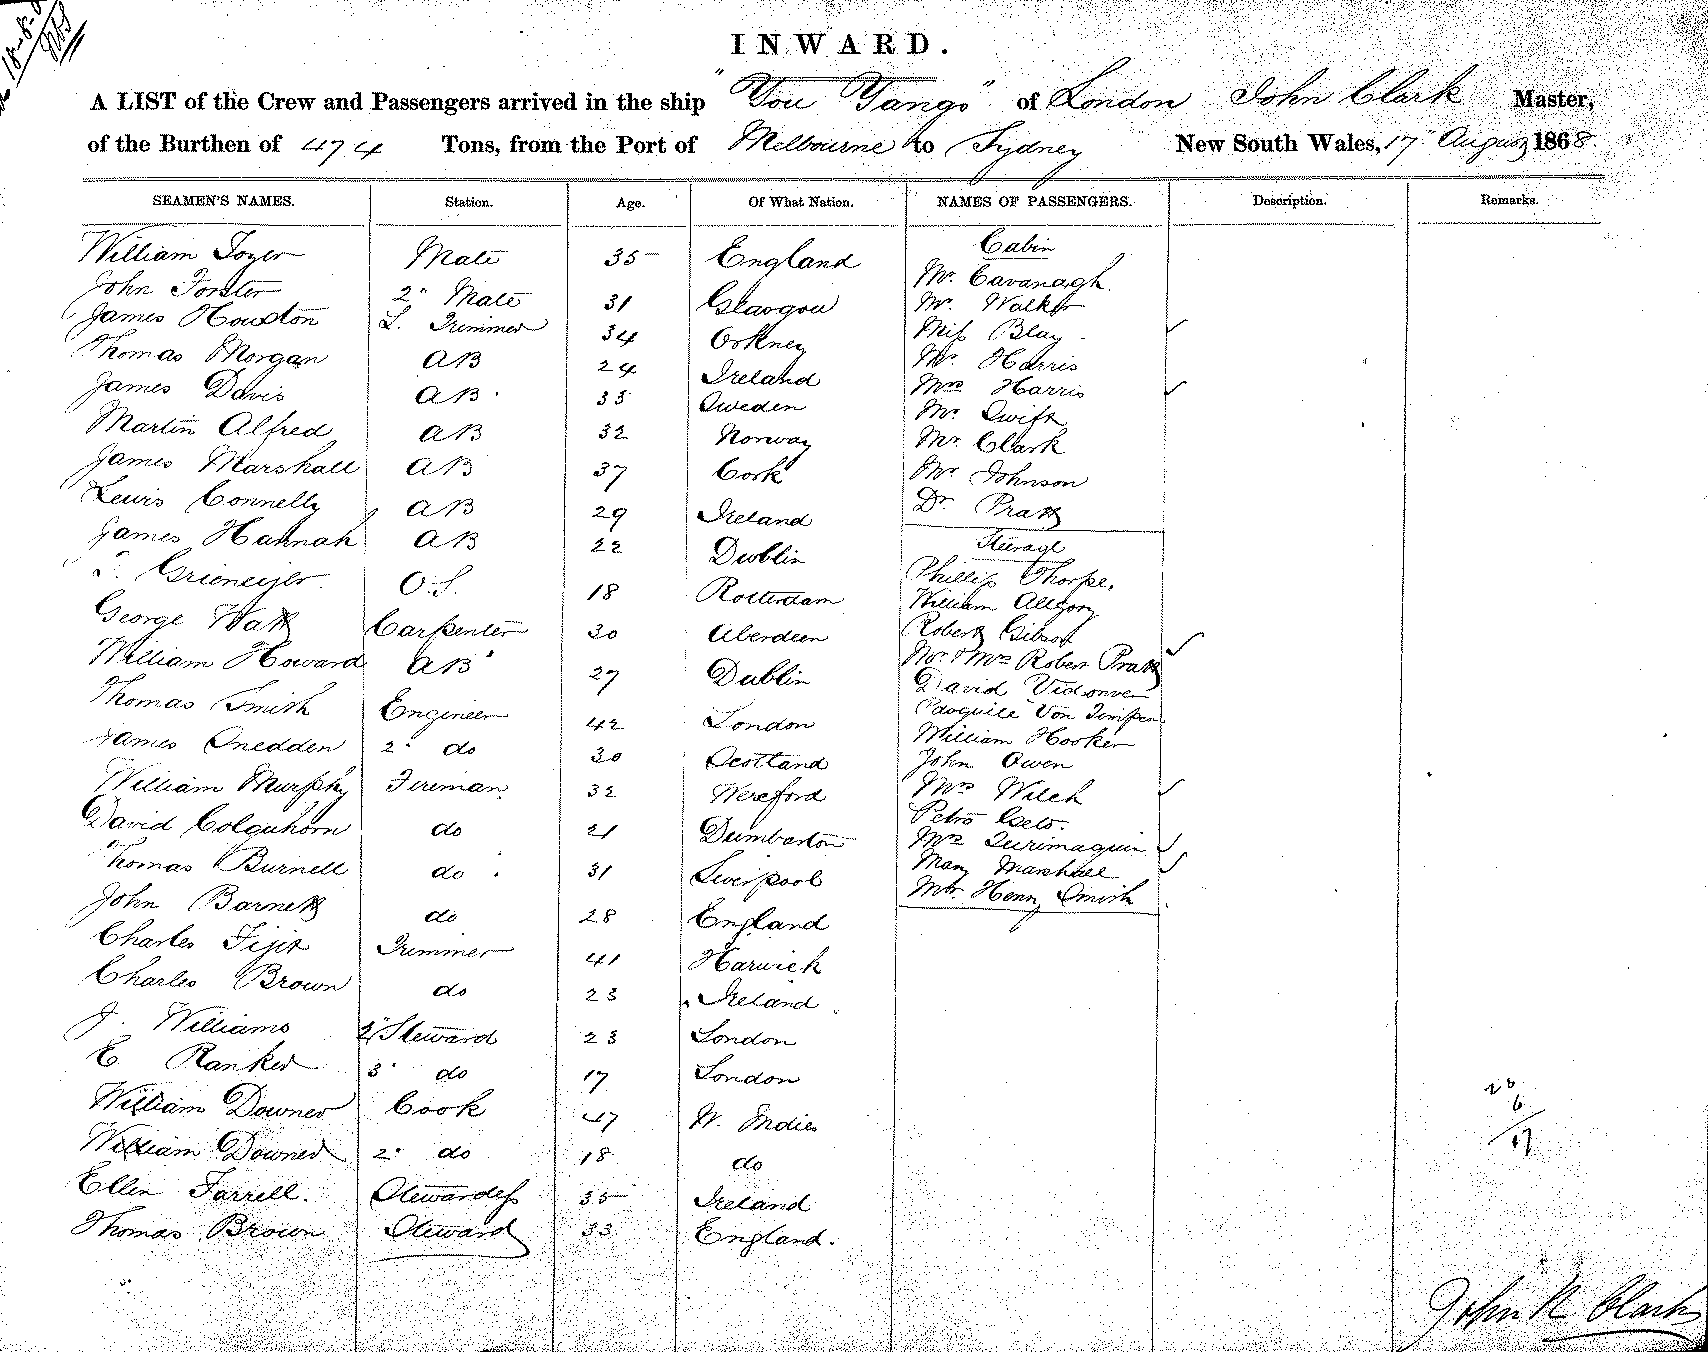 18-8-
INWARD.
A LIST of the Crew and Passengers arrived in the ship "You Yangs" of London John Clark Master,
of the Burthen of 474 Tons, from the Port of Melbourne to Sydney New South Wales, 17" August 1868
SEAMEN'S NAMES. Station. Age. Of What Nation. NAMES OF PASSENGERS. Description. Remarks.
William Tozer Mate 35 England
John Forster 2" Mate 31 Glasgow
James Houston L. Trimmer 34 Orkney
Thomas Morgan AB 24 Ireland
James Davis AB 33 Sweden
Martin Alfred AB 32 Norway
James Marshall AB 37 Cork
Lewis Connelly AB 29 Ireland
James Hannah AB 22 Dublin
O.S. 18 Rotterdam
George Watt Carpenter 30 Aberdeen
William Howard AB 27 Dublin
Thomas Smith Engineer 42 London
James Snedden 2" do 30 Scotland
William Murphy Fireman 32 Wereford
David Colquhorn do 21 Dumbarton
Thomas Burnell do 31 Liverpool
John Barnett do 28 England
Charles Trimmer 41 Harwich
Charles Brown do 23 Ireland
J. Williams 2" Steward 23 London
E Ranked 3" do 17 London
William Downer Cook 47 W. Indies
William Downer 2" do 18 do
Ellen Farrell. Stewardess 35 Ireland
Thomas Brown Steward 33 England.
Cabin
Mr. Cavanagh
Mr. Walker
Miss Blay
Mr. Harris
Mrs Harris
Mr. Swift
Mr. Clark
Mr Johnson
Dr. Pratt
Steerage
Phillip Thorpe.
William Allgory
Robert Gibson
Mr. & Mrs Robert Pratt
David
Von
William Hooker
John Owen
Mrs Welch
Petro
Mrs Turimaquin
Mary Marshall
Mr. Henry Smith
John N Clark